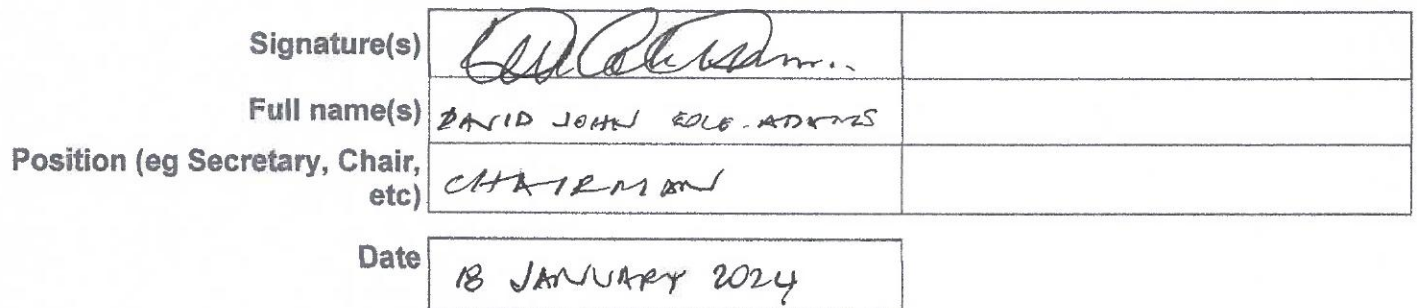 Signature(s)
Full name(s) DAVID JOHN COLE-ADAMS
Position (eg Secretary, Chair,
etc) CHAIRMAN
Date 18 JANUARY 2024